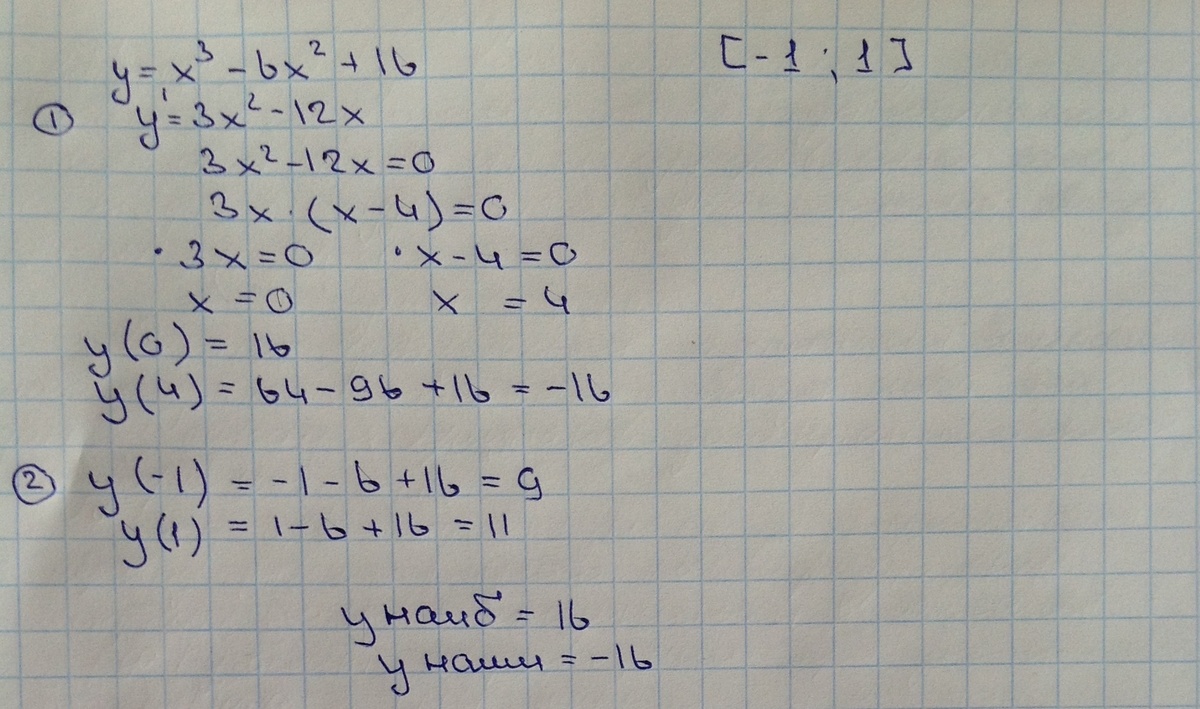 y = x³ - 6x² + 16 [-1 ; 1]
① y' = 3x² - 12x
3x² - 12x = 0
3x · (x - 4) = 0
· 3x = 0 · x - 4 = 0
x = 0 x = 4
y(0) = 16
y(4) = 64 - 96 + 16 = -16
② y(-1) = -1 - 6 + 16 = 9
y(1) = 1 - 6 + 16 = 11
y наиб = 16
y наим = -16